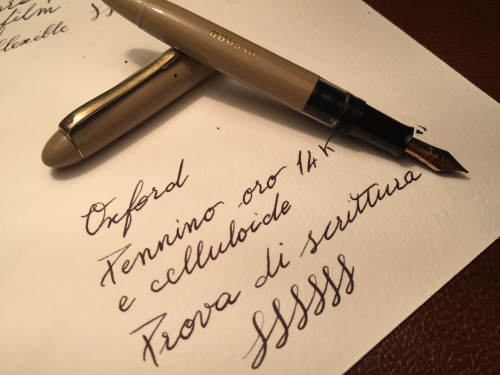 film
OXFORD
Oxford
Pennino oro 14K
e celluloide
Prova di scrittura